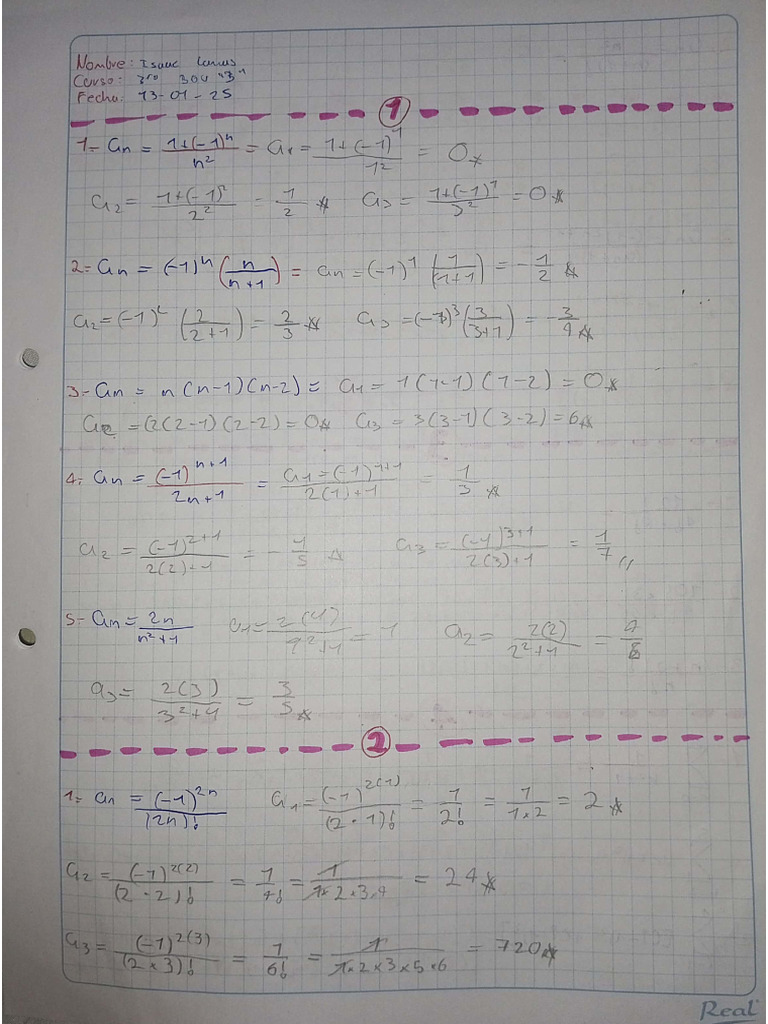 Nombre: Isaac
Curso: 3ro BGU "B"
Fecha: 13-01-25
1
1- an = 1+(-1)^n / n^2 = a1 = 1+(-1)^1 / 1^2 = 0
a2 = 1+(-1)^2 / 2^2 = 1/2 a3 = 1+(-1)^1 / 3^2 = 0
2- an = (-1)^n (n / n+1) = an = (-1)^1 (1 / 1+1) = -1/2
a2 = (-1)^2 (2 / 2+1) = 2/3 a3 = (-1)^3 (3 / 3+1) = -3/4
3- an = n(n-1)(n-2) = a1 = 1(1-1)(1-2) = 0
a2 = (2(2-1)(2-2) = 0 a3 = 3(3-1)(3-2) = 6
4- an = (-1)^n+1 / 2n+1 = a1 = (-1)^1+1 / 2(1)+1 = 1/3
a2 = (-1)^2+1 / 2(2)+1 = -1/5 a3 = (-1)^3+1 / 2(3)+1 = 1/7
5- an = 2n / n^2+1 a1 = 2(1) / 1^2+1 = 1 a2 = 2(2) / 2^2+1 = 4/5
a3 = 2(3) / 3^2+1 = 3/5
2
1- an = (-1)^2n / (2n)! a1 = (-1)^2(1) / (2·1)! = 1/2! = 1 / 1×2 = 2
a2 = (-1)^2(2) / (2·2)! = 1/4! = 1 / 1×2×3×4 = 24
a3 = (-1)^2(3) / (2×3)! = 1/6! = 1 / 1×2×3×5×6 = 720
Real